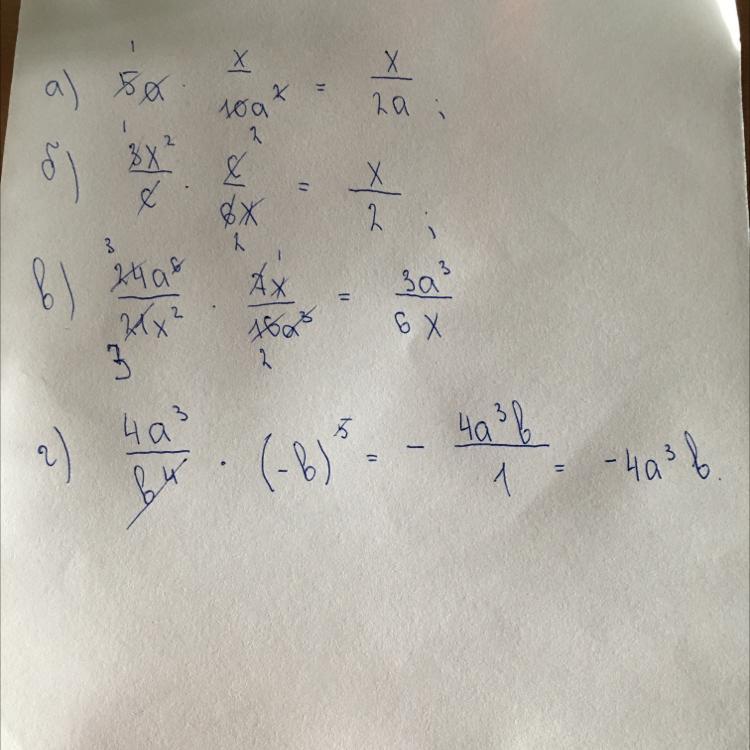 а) 5a · x/10a² = x/2a ;
б) 3x²/c · c/6x = x/2 ;
в) 24a⁶/21x² · 7x/16a³ = 3a³/6x
г) 4a³/b⁴ · (-b)⁵ = - 4a³b/1 = -4a³b.